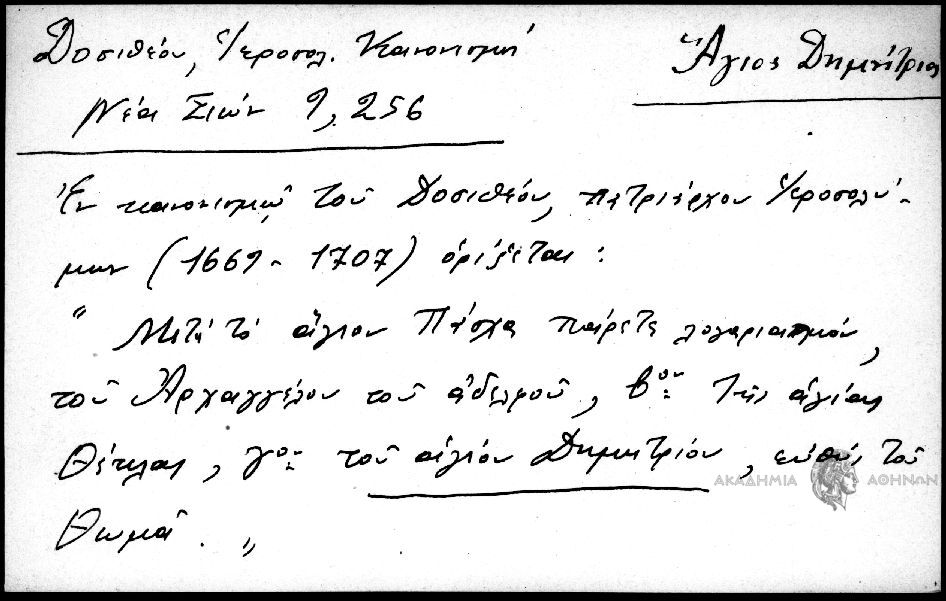 Δοσιθέου, Ἱεροσολ. Κανονισμοί
Ἅγιος Δημήτριος
Νέαι Σιών 9, 256
Ἐν κανονισμῷ τοῦ Δοσιθέου, πατριάρχου Ἱεροσολύ-
μων (1669 - 1707) ὁρίζεται :
" Μετὰ τὸ ἅγιον Πάσχα παίρετε λογαριασμόν,
τοῦ Ἀρχαγγέλου τοῦ ἀδελφοῦ, βον τῆς ἁγίας
Θέκλας, γον τοῦ ἁγίου Δημητρίου, εὐθὺς τοῦ
Θωμᾶ. "
ΑΚΑΔΗΜΙΑ ΑΘΗΝΩΝ